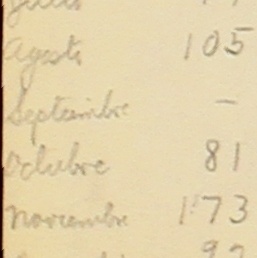 Agosto 105
Septiembre -
Octubre 81
Noviembre 173